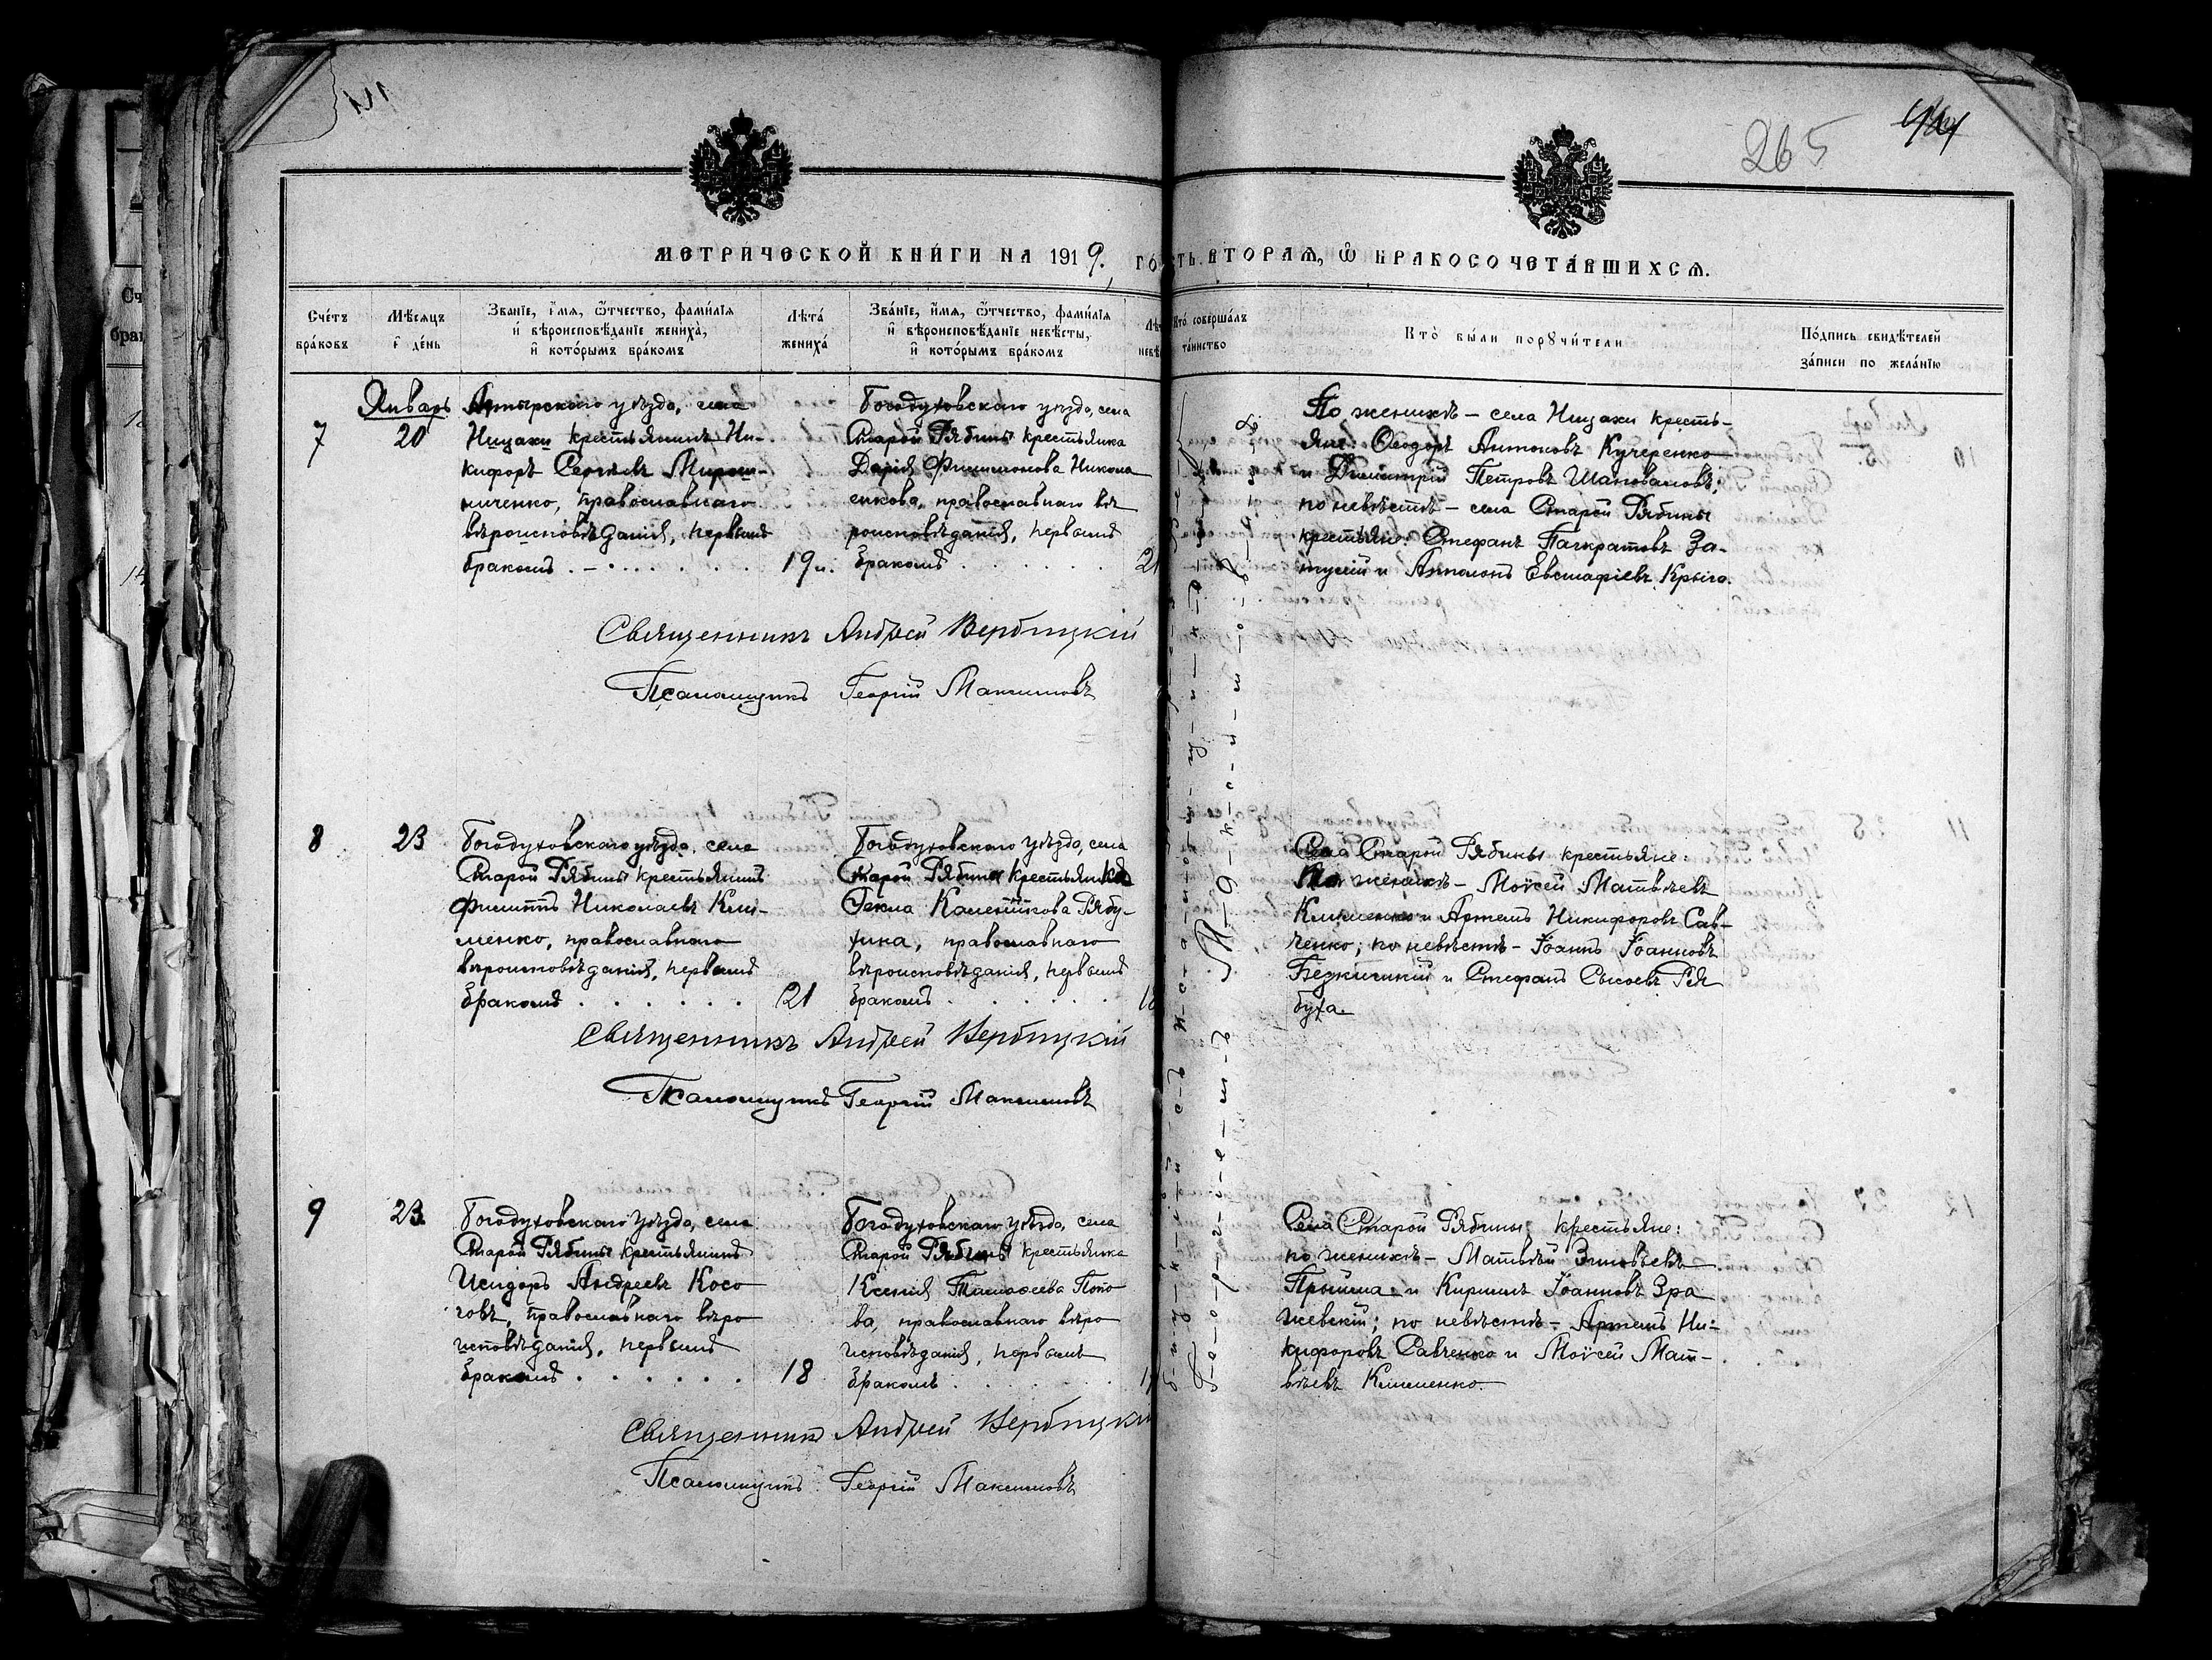 265
МЕТРИЧЕСКОЙ КНИГИ НА 1919. ГО
ТЬ ВТОРАЯ, Ѡ БРАКОСОЧЕТАВШИХСЯ.
Счетъ браковъ
Мѣсяцъ и день
Званіе, имя, ѿчество, фамилія
и вѣроисповѣданіе жениха,
и которымъ бракомъ
Лѣта жениха
Званіе, имя, ѿчество, фамилія
и вѣроисповѣданіе невѣсты,
и которымъ бракомъ
Кто совершалъ
таинство
Кто были порꙋчители
Подпись свидѣтелей
записи по желанію
7
Январь
20
Ахтырскаго уѣзда, села
Ницахи крестьянинъ Ни-
кифоръ Сергѣевъ Мирош-
ниченко, православнаго
вѣроисповѣданія, первымъ
бракомъ . – . . . . . .
19 л.
Богодуховскаго уѣзда, села
Старой Рябины крестьянка
Дарія Филимонова Никола-
енкова, православнаго вѣ
роисповѣданія, первымъ
бракомъ . . . . . .
21
По женихѣ – села Ницахи кресть-
яне: Ѳеодоръ Антоновъ Кучеренко
и Димитрій Петровъ Шаповаловъ;
по невѣстѣ – села Старой Рябины
крестьяне: Стефанъ Панкратовъ За-
и Евстафіевъ Крыга.
Священникъ Андрей Вербицкій
Псаломщикъ Георгій Максимовъ
8
23
Богодуховскаго уѣзда, села
Старой Рябины крестьянинъ
Филиппъ Николаевъ Кли-
менко, православнаго
вѣроисповѣданія, первымъ
бракомъ . . . . . .
21
Богодуховскаго уѣзда, села
Старой Рябины крестьянка
Ѳекла Рябу-
хина, православнаго
вѣроисповѣданія, первымъ
бракомъ . . . . . .
18
Села Старой Рябины крестьяне:
По женихѣ – Моѵсей Матвѣевъ
Клименко и Артемъ Никифоровъ Сав-
ченко; по невѣстѣ – Іоаннъ Іоанновъ
и Стефанъ Сысоевъ Ря
буха.
Священникъ Андрей Вербицкій
Псаломщикъ Георгій Максимовъ
9
23.
Богодуховскаго уѣзда, села
Старой Рябины крестьянинъ
Исидоръ Андреевъ Косо
говъ, православнаго вѣро
исповѣданія, первымъ
бракомъ . . . . . .
18
Богодуховскаго уѣзда, села
Старой Рябины крестьянка
Ксенія Тимоѳеева Попо
ва, православнаго вѣро
исповѣданія, первымъ
бракомъ . . . . . .
Села Старой Рябины крестьяне:
по женихѣ – Матвѣй Зиновьевъ
и Кириллъ Іоанновъ Зра
жевскій; по невѣстѣ – Артемъ Ни-
кифоровъ Савченко и Моѵсей Мат-
вѣевъ Клименко.
Священникъ Андрей Вербицкій
Псаломщикъ Георгій Максимовъ